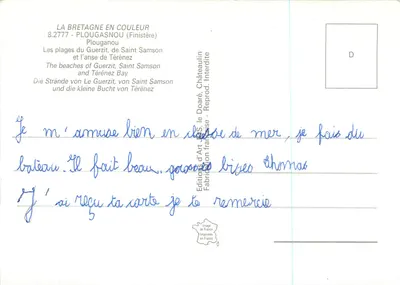 LA BRETAGNE EN COULEUR
8.2777 - PLOUGASNOU (Finistère)
Plouganou
Les plages du Guerzit, de Saint Samson
et l'anse de Térénez
The beaches of Guerzit, Saint Samson
and Térénez Bay
Die Strände von Le Guerzit, von Saint Samson
und die kleine Bucht von Térénez
D
Editions d'Art JOS, le Doaré, Châteaulin
Fabrication française - Reprod. Interdite
Je m'amuse bien en classe de mer, je fais du
bateau. Il fait beau. bises thomas
J'ai reçu ta carte je te remercie